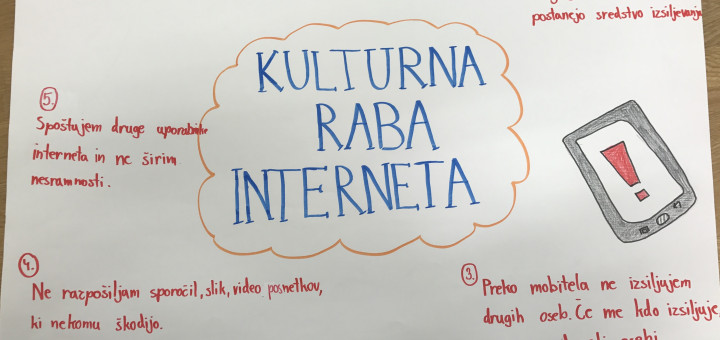 postanejo sredstvo izsiljevanja
KULTURNA
RABA
INTERNETA
5.
Spoštujem druge uporabnike
interneta in ne širim
nesramnosti.
4.
Ne razpošiljam sporočil, slik, video posnetkov,
ki nekomu škodijo.
3.
Preko mobitela ne izsiljujem
drugih oseb. Če me kdo izsiljuje,